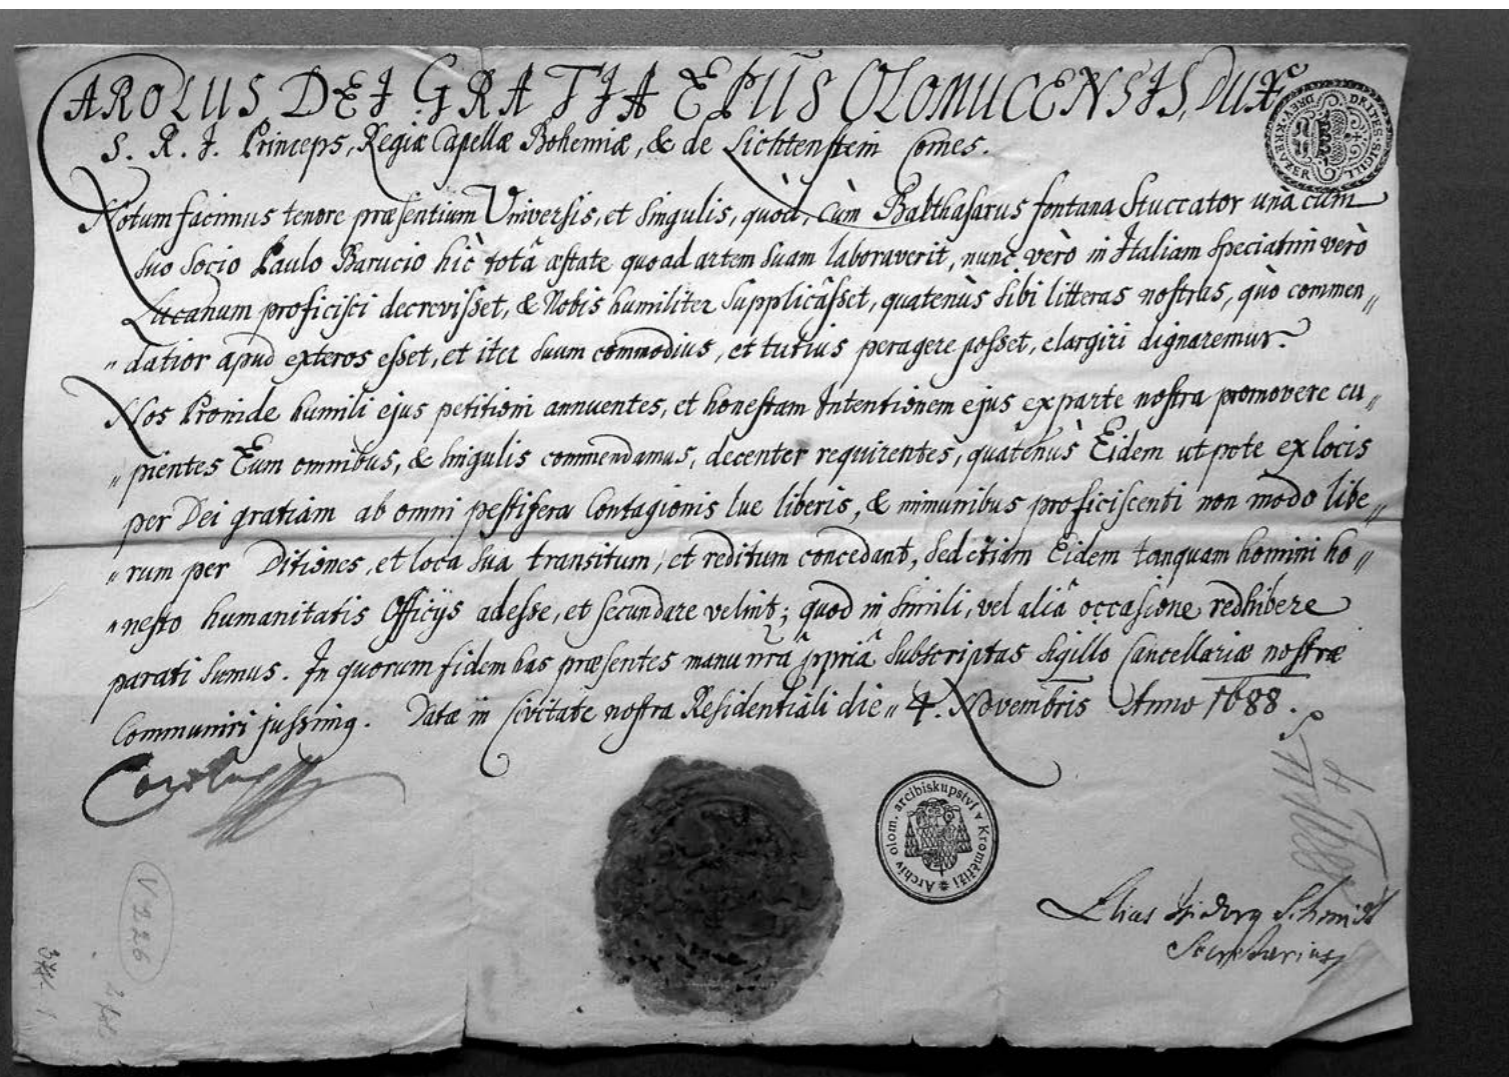 CAROLUS DEI GRATIA EPUS OLOMUCENSIS, DUX
S. R. I. Princeps, Regiæ Capellæ Bohemiæ, & de Lichtenstein Comes.
Notum facimus tenore præsentium Universis, et Singulis, quòd, cùm Balthasarus fontana Stuccator unà cum
suo Socio Paulo Barucio hîc totâ æstate quoad artem Suam laboraverit, nunc verò in Italiam speciatim verò
Lucanum proficisci decrevisset, & Nobis humiliter Supplicâsset, quatenùs Sibi litteras nostras, quò commen„
„datior apud exteros esset, et iter Suum commodius, et tutius peragere posset, elargiri dignaremur.
Nos Proinde humili ejus petitioni annuentes, et honestam Intentionem ejus ex parte nostra promovere cu„
„pientes Eum omnibus, & Singulis commendamus, decenter requirentes, quatenùs Eidem utpote ex locis
per Dei gratiam ab omni pestifera Contagionis lue liberis, & immunibus proficiscenti non modo libe„
„rum per Ditiones, et loca Sua transitum, et reditum concedant, Sed etiam Eidem tanquam homini ho„
„nesto humanitatis Officijs adesse, et secundare velint; quod in Simili, vel aliâ occasione redhibere
parati Sumus. In quorum fidem has præsentes manu nrâ ppriâ Subscriptas Sigillo Cancellariæ nostræ
Communiri jussimq. Datæ in Civitate nostra Residentiali die„ 4. Novembris Anno 1688.
Carolus
Archiv olom. arcibiskupství v Kroměříži
Elias Isidorq Schmidt
Secretarius
V 226